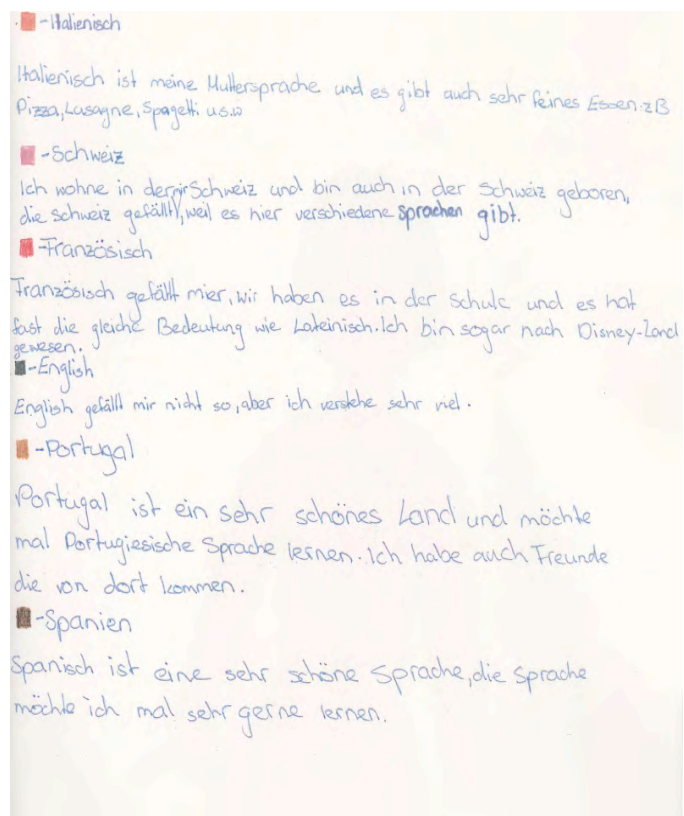 -Italienisch
Italienisch ist meine Muttersprache und es gibt auch sehr feines Essen.zB
Pizza,Lasagne,Spagetti u.s.w
-Schweiz
Ich wohne in der Schweiz und bin auch in der Schweiz geboren,
die schweiz gefällt mir, weil es hier verschiedene sprachen gibt.
-Französisch
Französisch gefällt mier, wir haben es in der Schule und es hat
fast die gleiche Bedeutung wie Lateinisch. Ich bin sogar nach Disney-Land
gewesen.
-English
English gefällt mir nicht so, aber ich verstehe sehr viel.
-Portugal
Portugal ist ein sehr schönes Land und möchte
mal Portugiesische Sprache lernen. Ich habe auch Freunde
die von dort kommen.
-Spanien
Spanisch ist eine sehr schöne Sprache, die Sprache
möchte ich mal sehr gerne lernen.